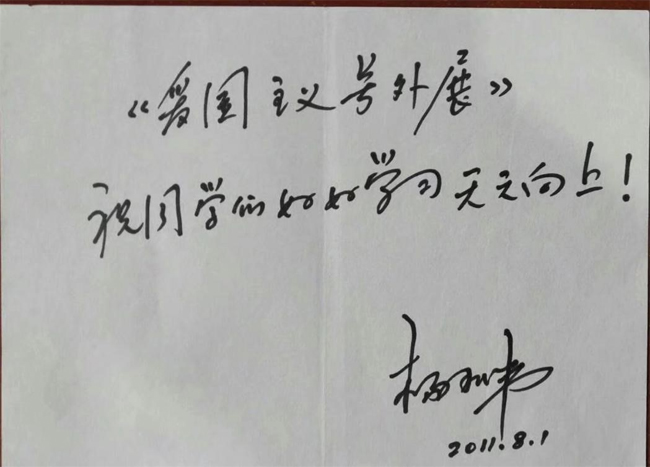 《爱国主义号外展》
祝同学们好好学习天天向上！
杨
2011.8.1